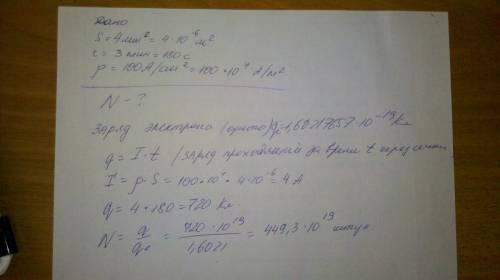 Дано
S = 4 мм² = 4·10⁻⁶ м²
t = 3 мин = 180 с
p = 100 А/см² = 100·10⁴ А/м²
N - ?
Заряд электрона (одного) qₑ=1,60217657·10⁻¹⁹ Кл
q = I·t /заряд проходящий за время t через сечение
I = p·S = 100·10⁴ · 4·10⁻⁶ = 4 А
q = 4·180 = 720 Кл
N = q/qₑ = 720·10¹⁹/1,6021 = 449,3·10¹⁹ штук